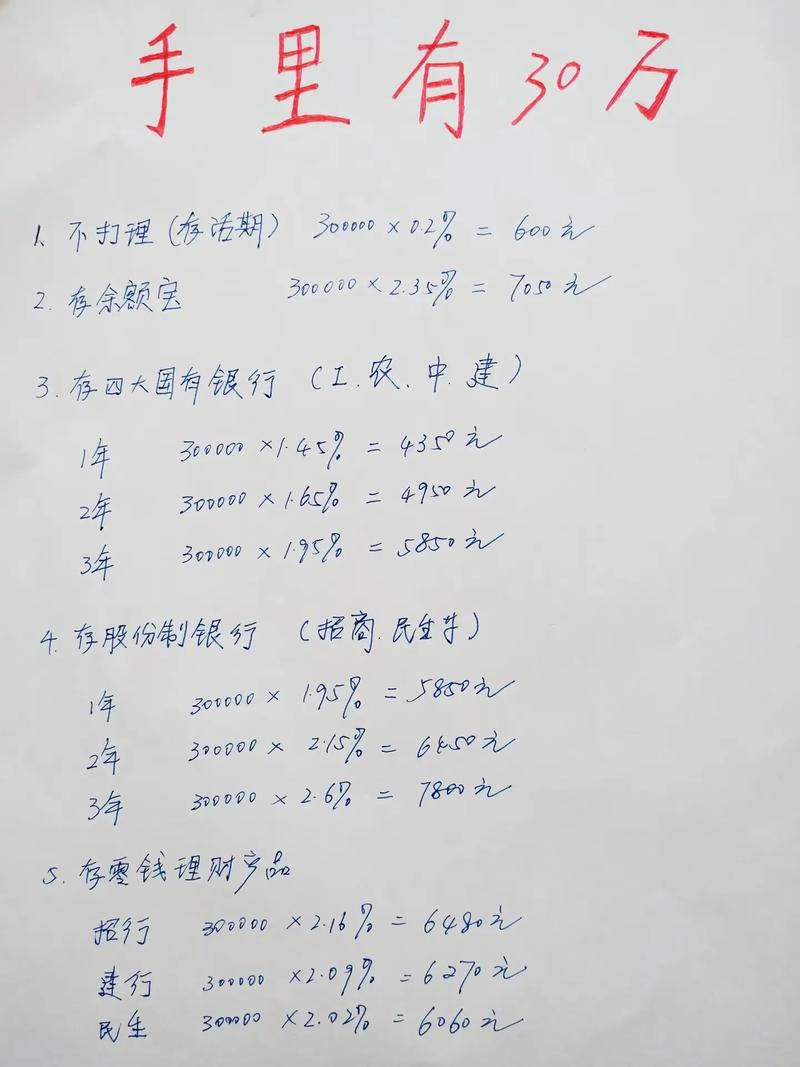 手里有30万
1、不打理(存活期) 300000×0.2%=600元
2.存余额宝 300000×2.35%=7050元
3.存四大国有银行(工.农.中.建)
1年 300000×1.45%=4350元
2年 300000×1.65%=4950元
3年 300000×1.95%=5850元
4.存股份制银行(招商.民生等)
1年 300000×1.95%=5850元
2年 300000×2.15%=6450元
3年 300000×2.6%=7800元
5.存零钱理财产品
招行 300000×2.16%=6480元
建行 300000×2.09%=6270元
民生 300000×2.02%=6060元